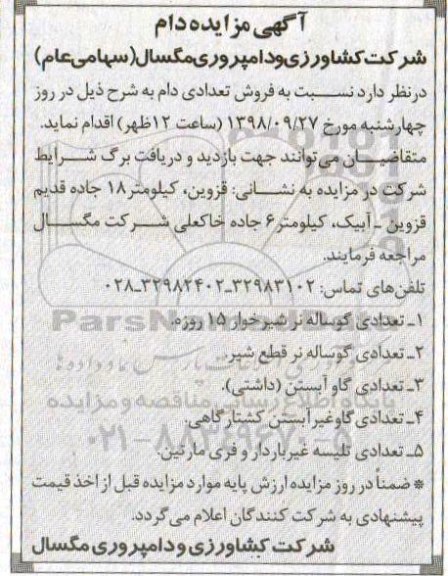 آگهی مزایده دام
شرکت کشاورزی و دامپروری مگسال (سهامی عام)
درنظر دارد نسبت به فروش تعدادی دام به شرح ذیل در روز
چهارشنبه مورخ ۱۳۹۸/۰۹/۲۷ (ساعت ۱۲ ظهر) اقدام نماید.
متقاضیان می توانند جهت بازدید و دریافت برگ شرایط
شرکت در مزایده به نشانی: قزوین، کیلومتر ۱۸ جاده قدیم
قزوین ـ آبیک، کیلومتر ۶ جاده خاکعلی شرکت مگسال
مراجعه فرمایند.
تلفن های تماس: ۳۲۹۸۳۱۰۲ـ۳۲۹۸۲۴۰۲ـ۰۲۸
۱ـ تعدادی گوساله نر شیرخوار ۱۵ روزه.
۲ـ تعدادی گوساله نر قطع شیر.
۳ـ تعدادی گاو آبستن (داشتی).
۴ـ تعدادی گاو غیر آبستن کشتارگاهی.
۵ـ تعدادی تلیسه غیرباردار و فری مارتین.
* ضمناً در روز مزایده ارزش پایه موارد مزایده قبل از اخذ قیمت
پیشنهادی به شرکت کنندگان اعلام می گردد.
شرکت کشاورزی و دامپروری مگسال
ParsNamadData
پایگاه اطلاع رسانی مناقصه و مزایده
۰۲۱-۸۸۳۴۹۶۷۰-۵